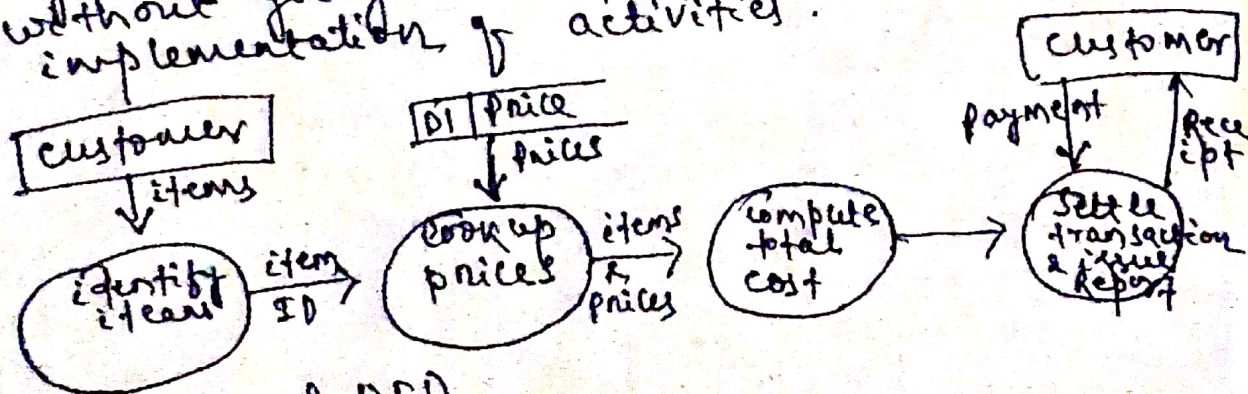 without
implementation of activities.
customer
items
identify
items
item
ID
D1 Price
Prices
Look up
prices
items
&
prices
compute
total
cost
customer
Payment
Rece
ipt
Settle
transaction
& issue
Report
DFD